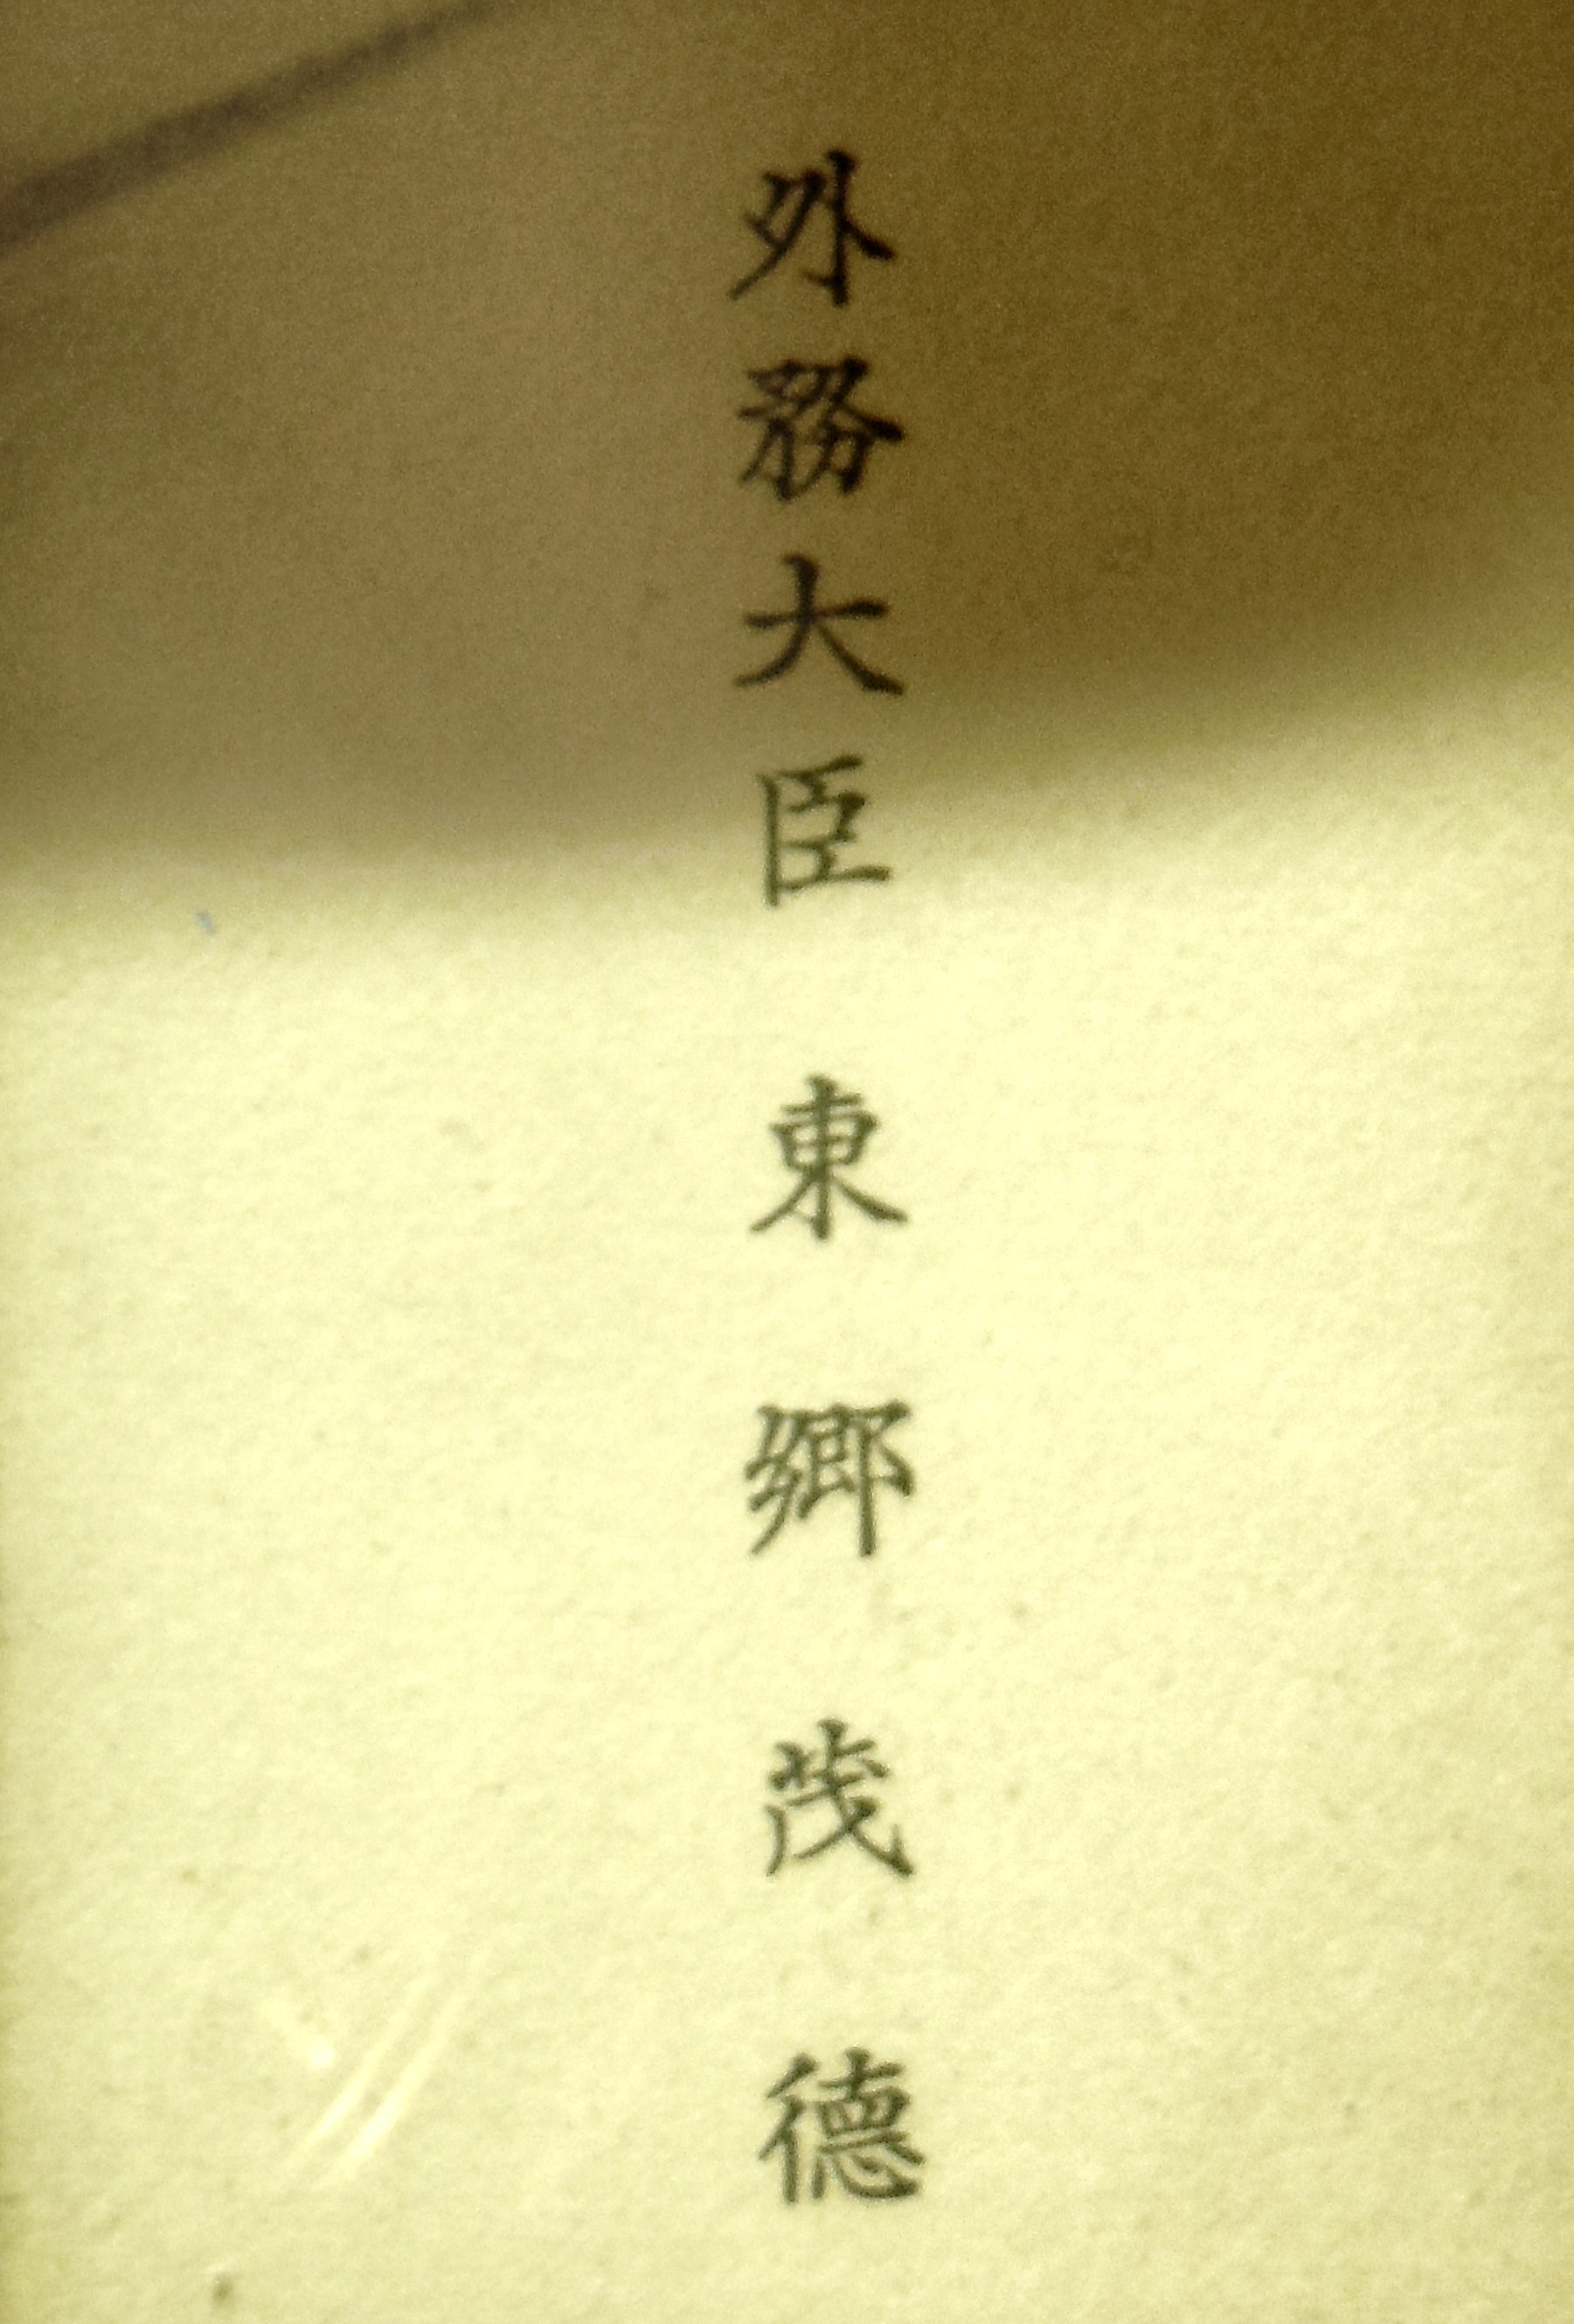 外務大臣 東郷茂徳